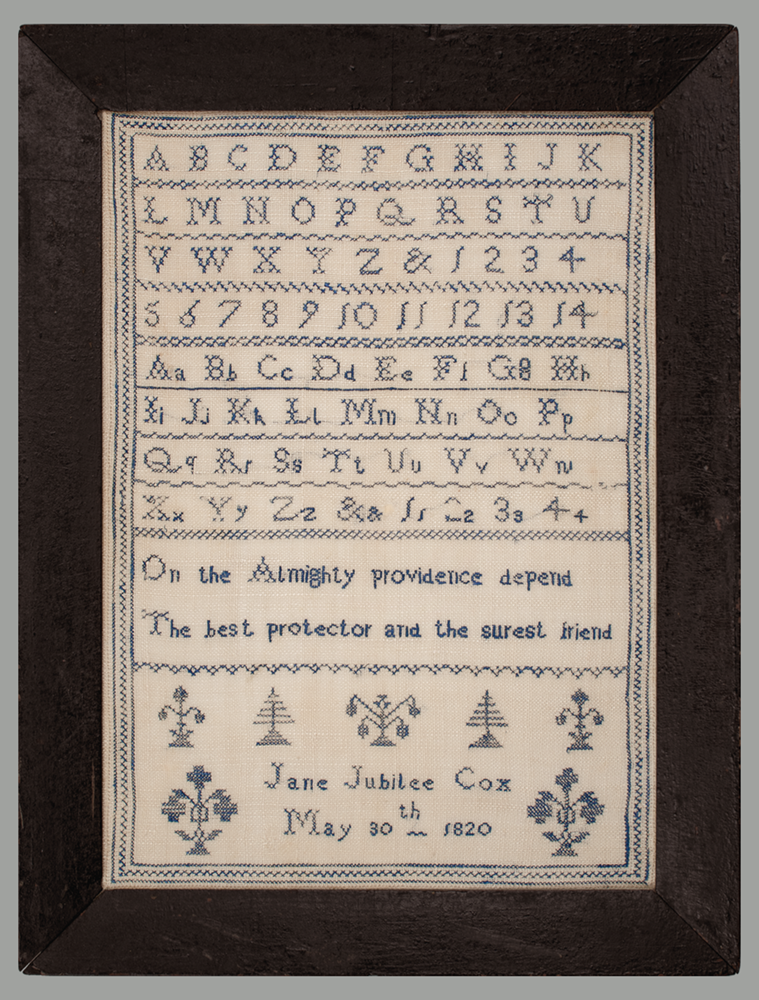 A B C D E F G H I J K
L M N O P Q R S T U
V W X Y Z & 1 2 3 4
5 6 7 8 9 10 11 12 13 14
Aa Bb Cc Dd Ee Ff Gg Hh
Ii Jj Kk Ll Mm Nn Oo Pp
Qq Rr Ss Tt Uu Vv Ww
Xx Yy Zz && 11 22 33 44
On the Almighty providence depend
The best protector and the surest friend
Jane Jubilee Cox
May 30th 1820